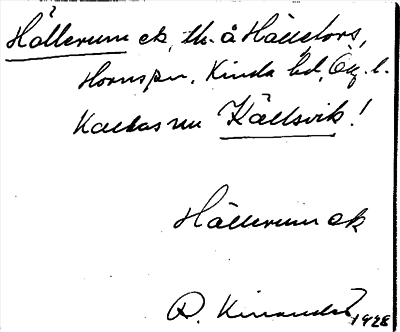 Hällerum ek, th. å Hälletors,
Hornspn, Kinda hd, Ög. l.
Kallas nu Källsvik!
Hällerum ek
R. Kinander 1928